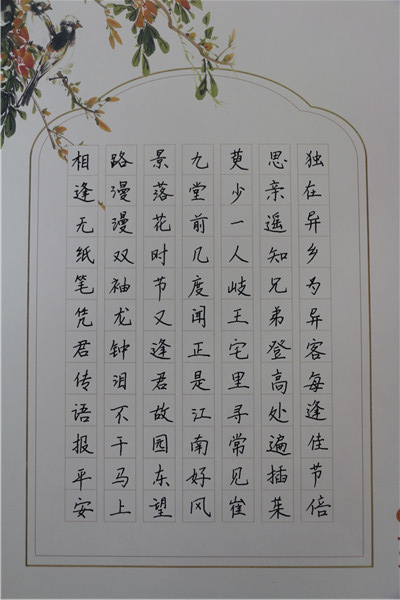 独在异乡为异客每逢佳节倍
思亲遥知兄弟登高处遍插茱
萸少一人岐王宅里寻常见崔
九堂前几度闻正是江南好风
景落花时节又逢君故园东望
路漫漫双袖龙钟泪不干马上
相逢无纸笔凭君传语报平安